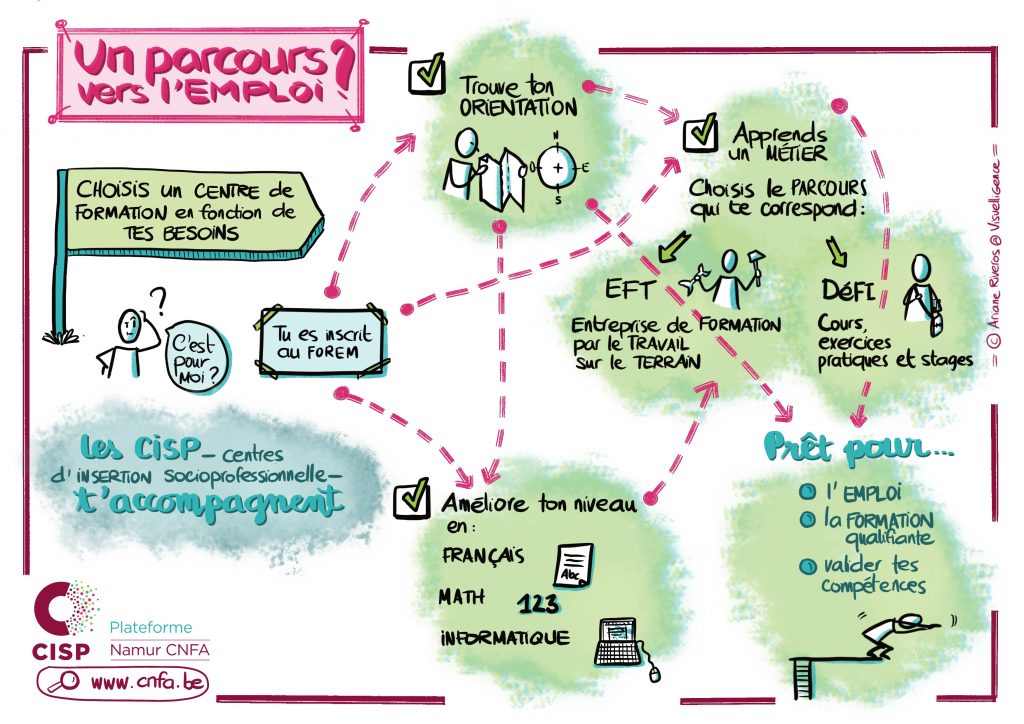 Un parcours
vers l'EMPLOI ?
CHOISIS UN CENTRE de
FORMATION en fonction de
TES BESOINS
?
C'est
pour
MOI ?
Tu es inscrit
au FOREM
Les CISP - CENTRES
d'INSERTION SOCIOPROFESSIONNELLE -
t'accompagnent
Trouve ton
ORIENTATION
N
O
E
S
Apprends
un MÉTIER
Choisis le PARCOURS
qui te correspond :
EFT
Entreprise de FORMATION
par le TRAVAIL
sur le TERRAIN
DéFI
Cours,
exercices
pratiques et stages
Améliore ton niveau
en :
FRANÇAIS
Abc
MATH
123
INFORMATIQUE
Prêt pour...
l'EMPLOI
la FORMATION
qualifiante
valider tes
compétences
CISP
Plateforme
Namur CNFA
www.cnfa.be
= © Ariane Riveros @ Visuelligence =